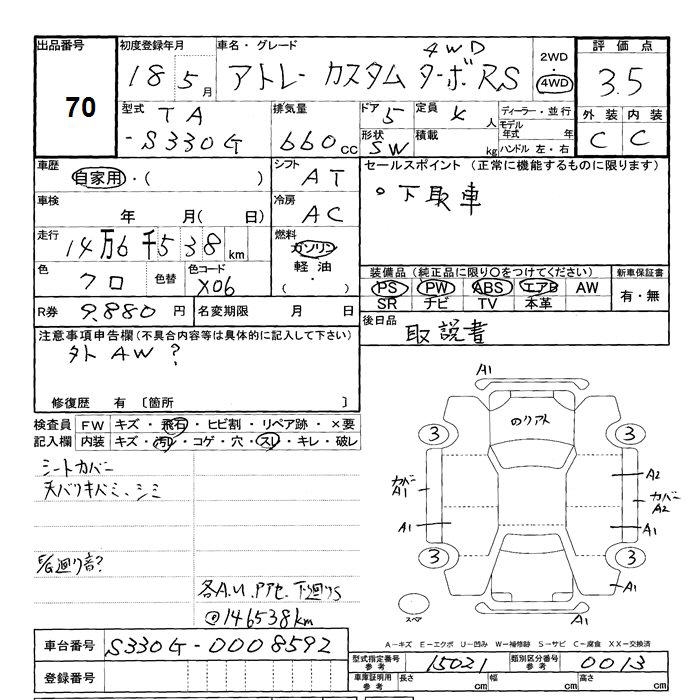 出品番号
70
初度登録年月
18 5月
車名・グレード
4WD
アトレーカスタムターボRS
2WD
・
4WD
評価点
3.5
外装 内装
C C
型式
TA
-S330G
排気量
660cc
ドア
5
定員
4人
形状
SW
積載
kg
ディーラー・並行
モデル
年式 年
ハンドル 左・右
車歴
自家用・( )
シフト
AT
セールスポイント(正常に機能するものに限ります)
○下取車
車検
年 月( 日)
冷房
AC
走行
14万6千538km
燃料
ガソリン
軽油
( ・ )
色
クロ
色替
色コード
X06
装備品(純正品に限り○をつけてください)
新車保証書
PS PW ABS エアB AW
有・無
SR ナビ TV 本革
R券
9.880円
名変期限 月 日
後日品
取説書
注意事項申告欄(不具合内容等は具体的に記入して下さい)
外AW?
修復歴 有 〔箇所 〕
検査員 FW キズ・飛石・ヒビ割・リペア跡・×要
記入欄 内装 キズ・汚レ・コゲ・穴・スレ・キレ・破レ
シートカバー
天バリキバミ、シミ
E/G廻り音?
各A.U.Pアセ.下廻りS
@146538km
A1
のりアト
3
3
A2
カバー
A1
カバー
A2
A1
A1
3
3
A1
スペア
A1
A-キズ E-エクボ U-凹み W-補修跡 S-サビ C-腐食 XX-交換済
車台番号
S330G-0008592
登録番号
型式指定番号
参考
15021
類別区分番号
参考
0013
車庫証明用
参考
長さ cm
幅 cm
高さ cm